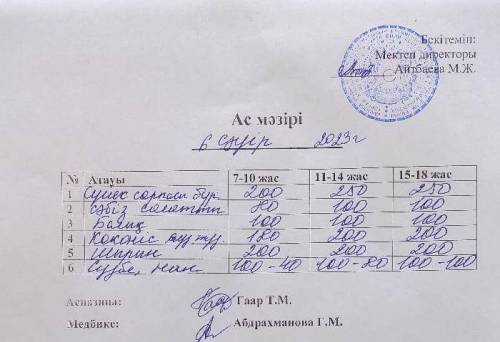 Бекітемін:
Мектеп директоры
Айтбаева М.Ж.
Ас мәзірі
6 сәуір 2023г
№ Атауы 7-10 жас 11-14 жас 15-18 жас
1 Сүйек сорпалы бұр. 200 250 250
2 Сәбіз салаты 80 100 100
3 Балық 100 100 100
4 Көкөніс 180 200 200
5 Шырын 200 200 200
6 Сүзбе, нан 100-40 100-80 100-100
Аспазшы: Гаар Т.М.
Медбике: Абдрахманова Г.М.